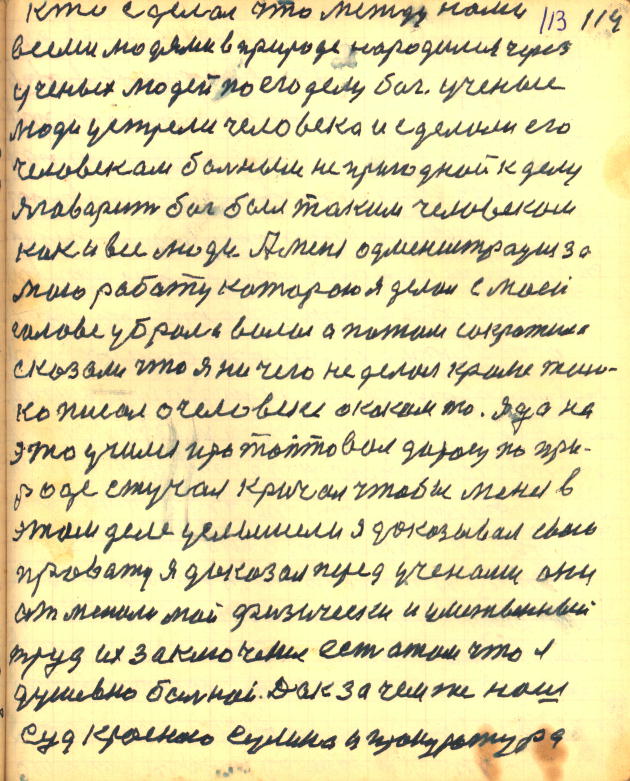 Кто сделал что между нами 113 114
всеми людями в природе народился через
ученых людей по его делу бог. ученые
люди устрели человека и сделали его
человекам больным не пригодной к делу
я гаварит бог был таким человеком
как и все люди. А меня одменистрация за
мою работу которою я делал с маей
голове убрали волос а потом сократили
сказали что я ничего не делал кроме толь-
ко писал о человеке о каком то. Я да на
это учился протоптовал дорогу по при-
роде стучал кричал чтобы меня в
этом деле услышели я доказывал свою
провату я доказал перед учеными они
отменоли мой физически и умственный
труд их заключение ест о том что я
душевно больной. Дак зачем же наш
суд Красного Сулина и прокуротура